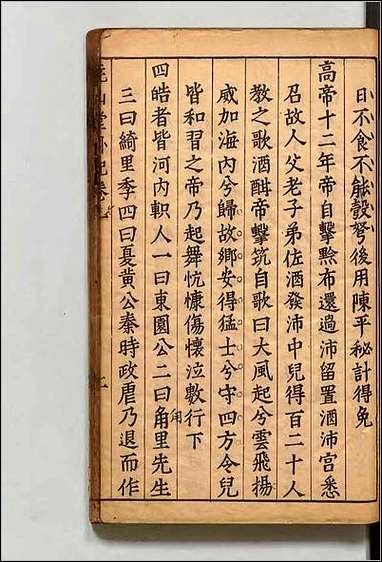 日不食不能彀弩後用陳平秘計得免
高帝十二年帝自擊黥布還過沛留置酒沛宮悉
召故人父老子弟佐酒發沛中兒得百二十人
敎之歌酒酣帝擊筑自歌曰大風起兮雲飛揚
威加海內兮歸故鄉安得猛士兮守四方令兒
皆和習之帝乃起舞忼慷傷懷泣數行下
四皓者皆河內軹人一曰東園公二曰角里先生
甪
三曰綺里季四曰夏黃公秦時政虐乃退而作
山堂
卷